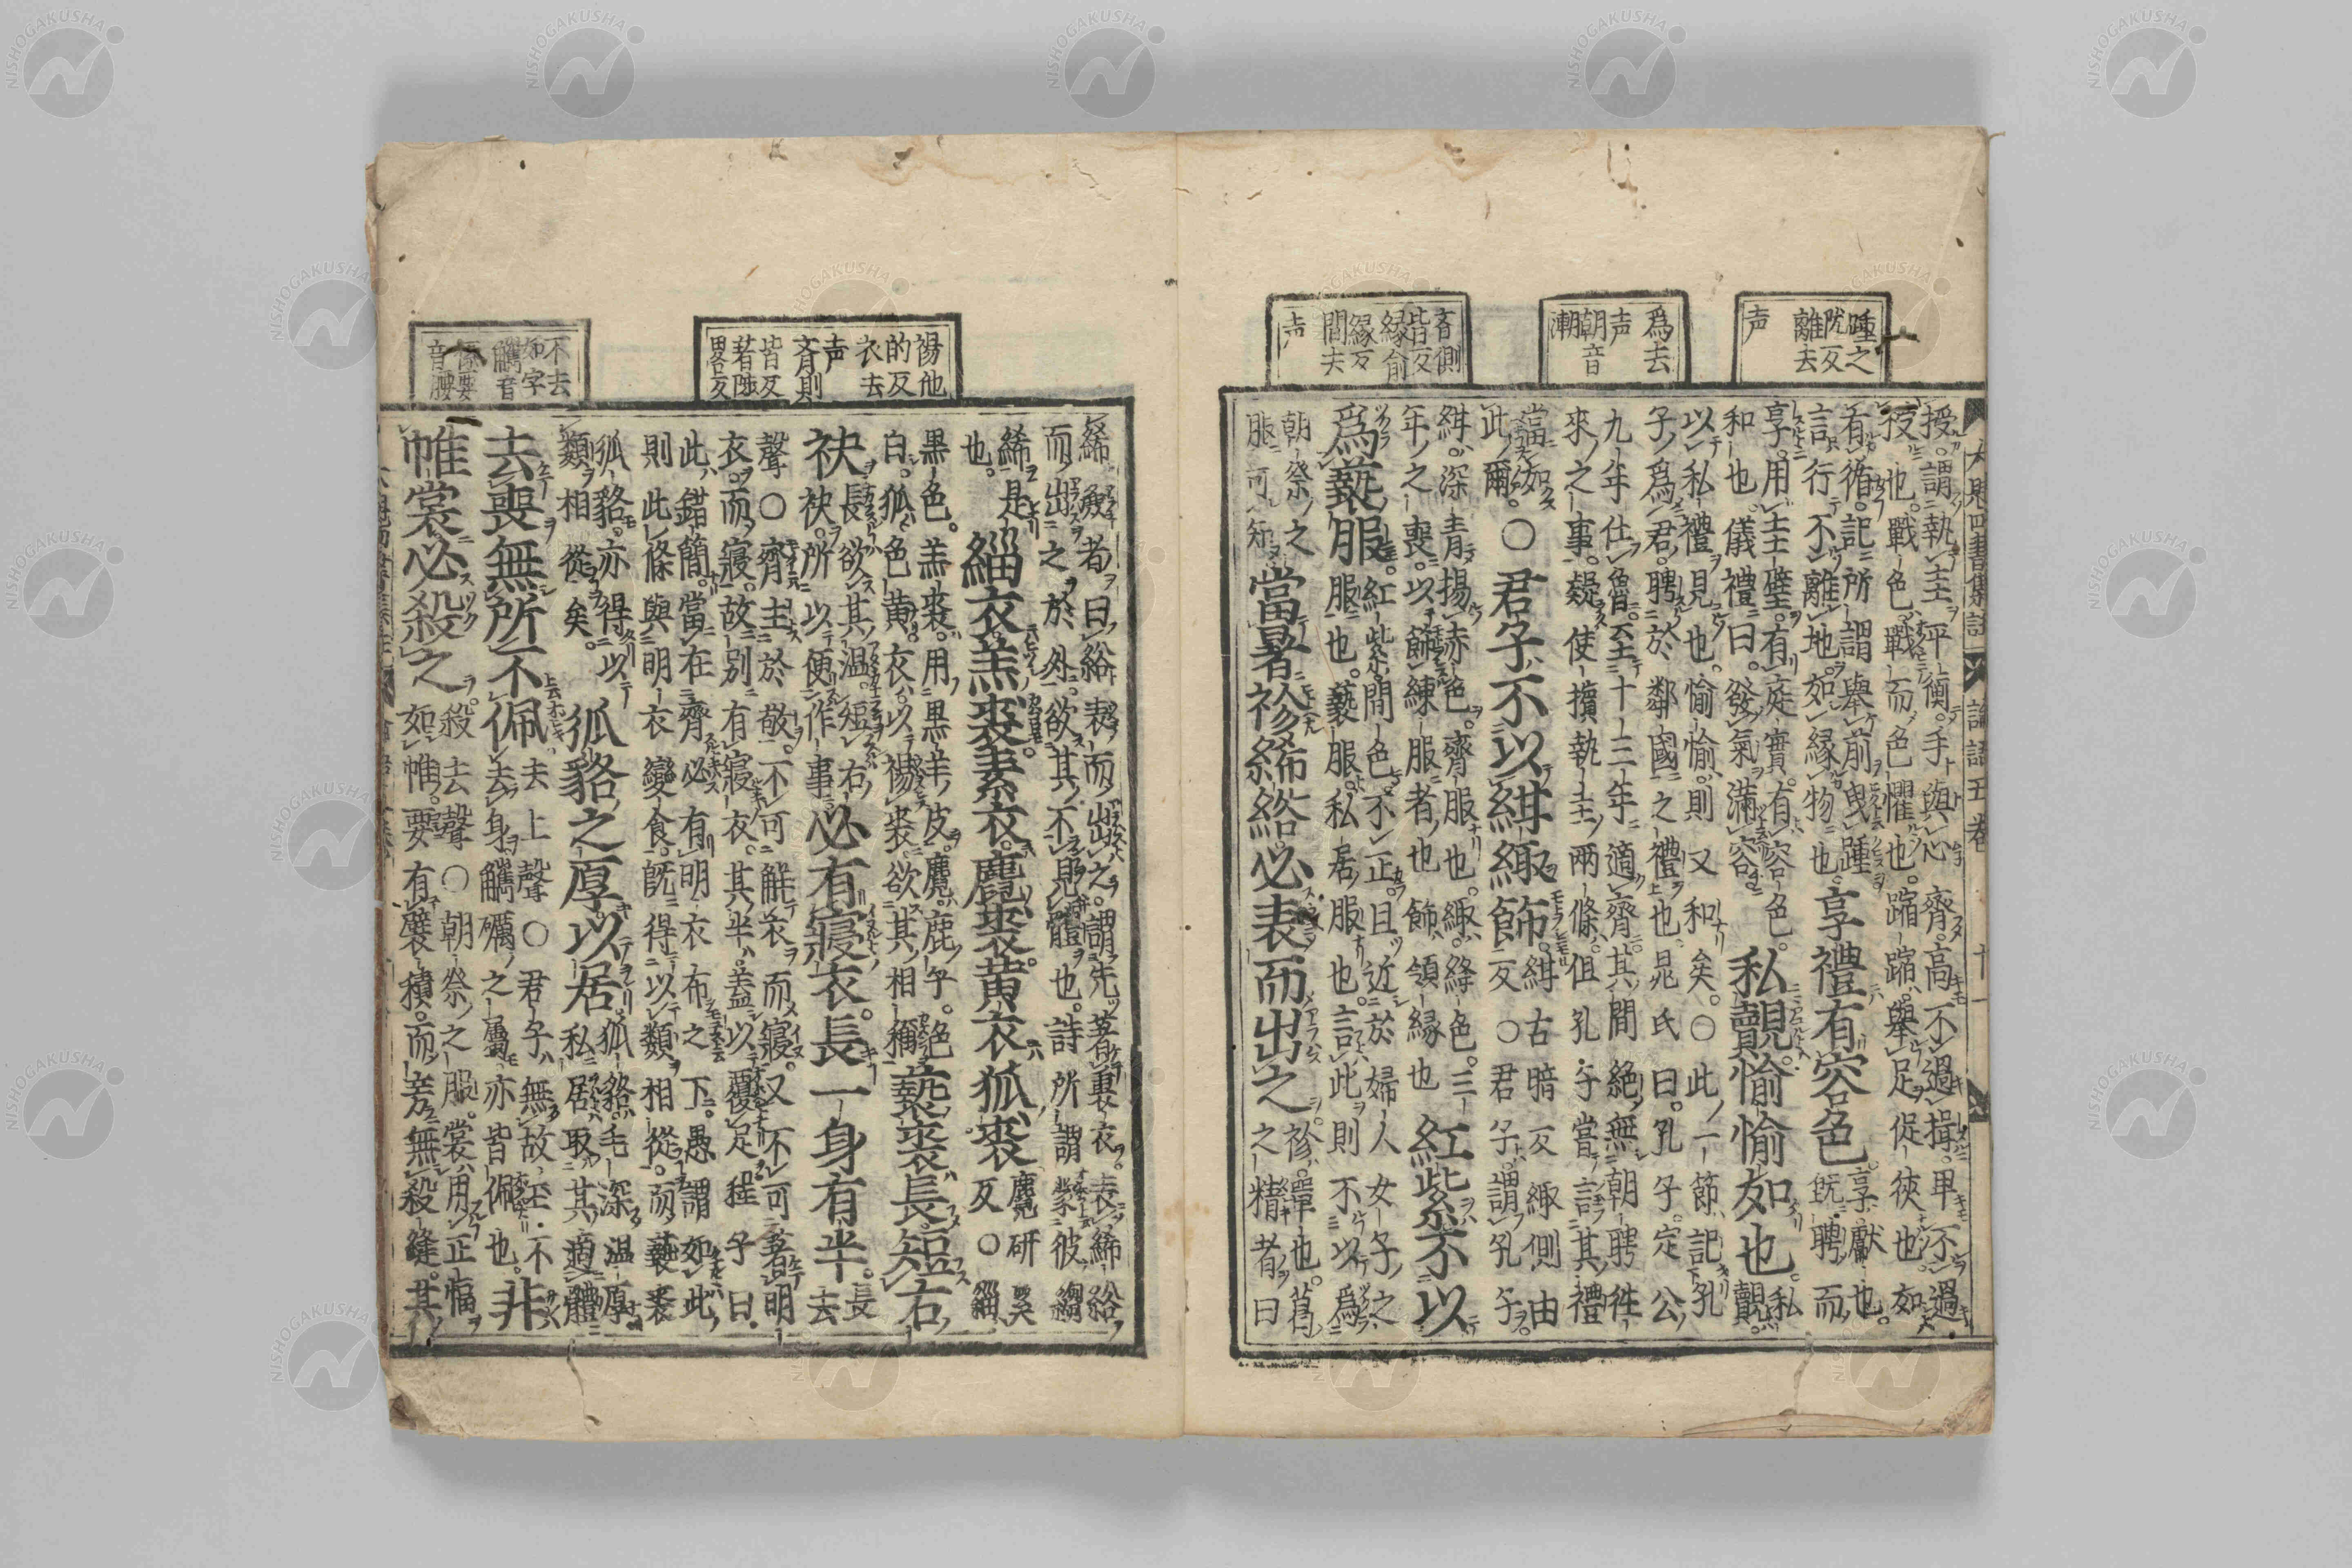 踵之
陇反
離去
声
爲去
声
朝音
潮
斉側
皆反
縁俞
縁反
間去
声
論語五巻
十一
授。謂執圭平衡。手與心齊。高不過揖。卑不過
授也。戰色。戰而色懼也。蹜蹜。擧足促狹也。如
有循。記所謂擧前曳踵
言行不離地。如縁物也
享禮有容色。
享。獻也。
既聘而
享。用圭璧。有庭實。有容色。
和也。儀禮曰。發氣滿容
私覿愉愉如也。
私
覿。
以私禮見也。愉愉。則又和矣。○此一節記孔
子爲君聘於鄰國之禮也。晁氏曰。孔子定公
九年仕魯。至十三年適齊。其間絶無朝聘往
來之事。疑使擯執圭兩條。但孔子嘗言其禮
當如
此爾。
○君子不以紺緅飾。
紺古暗反緅側由
反○君子。謂孔子。
紺。深青揚赤色。齊服也。緅。絳色。三
年之喪。以飾練服者也飾領縁也
紅紫不以
爲褻服。
紅紫。間色。不正且近於婦人女子之
服也。褻服。私居服也。言此則不以爲
朝祭之
服可知
當暑袗絺綌必表而出之。
袗。單也。葛
之精者曰
裼他
的反
衣去
声
斉則
皆反
著陟
畧反
不去
如字
觿音
要
音腰
絺。麁者曰綌表而出之。謂先著裏衣。表絺綌
而出之於外。欲其不見體也。詩所謂蒙彼縐
絺是
也。
緇衣羔裘。素衣麑裘。黄衣狐裘
麑研奚
反○緇。
黒色。羔裘。用黒羊皮。麑。鹿子。色
白。狐色黄。衣以裼裘。欲其相稱
褻裘長。短右
袂
長。欲其温。短右
袂。所以便作事
必有寢衣。長一身有半。
長
去
聲○齊主於敬。不可解衣而寢。又不可著明
衣。而寢。故別有寢衣。其半。蓋以覆足程子曰。
此錯簡。當在齊必有明衣布之下。愚謂如此
則此條與明衣變食。既得以類相從。而褻裘
狐貉。亦得以
類相從矣。
狐貉之厚。以居
狐貉。毛深温厚
私居取其適體
去喪無所不佩
去上聲○君子無故玉不
去身觿礪之屬亦皆佩也。
非
帷裳必殺之。
殺去聲○朝祭之服。裳用正幅
如帷。要有襞積。而旁無殺縫。其